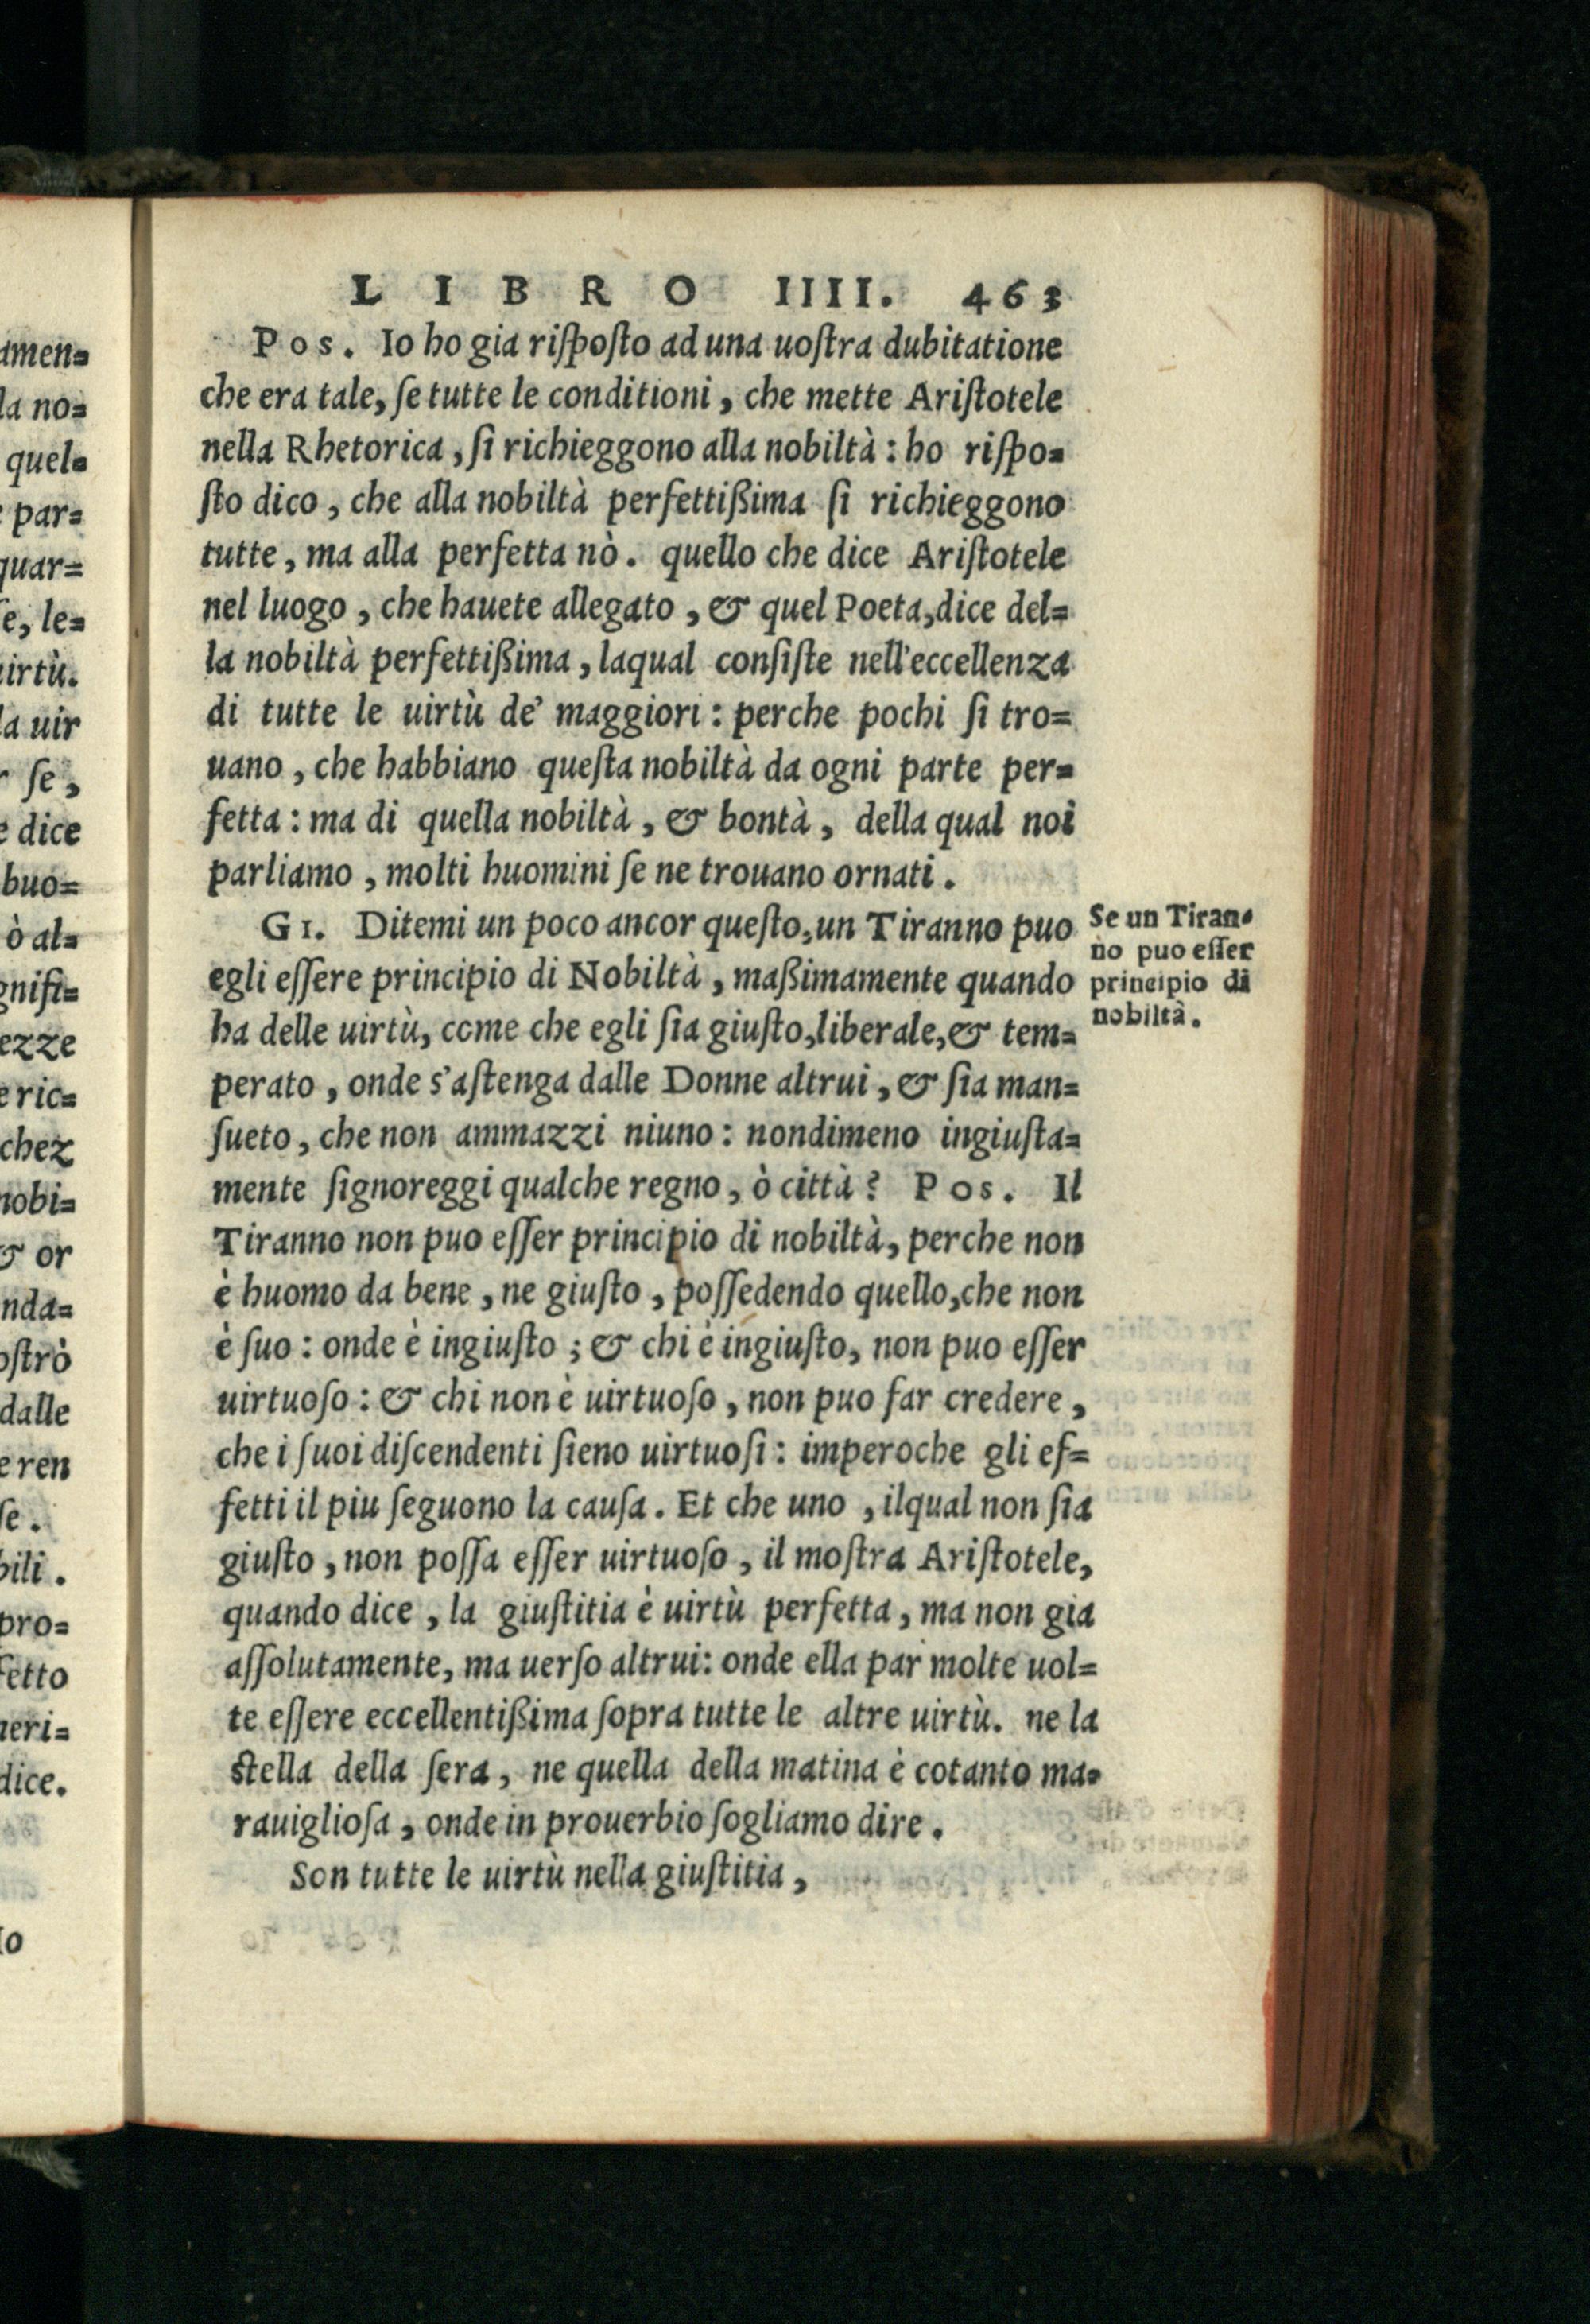 amen=
la no=
quel=
par=
quar=
e, le=
uirtù.
la uir
ſe,
dice
buo=
ò al=
gnifi=
ezze
e ric=
chez
nobi=
& or
nda=
oſtrò
dalle
eren
ſe.
bili.
pro=
fetto
neri=
dice.
Io
LIBRO IIII. 463
Pos. Io ho gia riſpoſto ad una uoſtra dubitatione
che era tale, ſe tutte le conditioni, che mette Ariſtotele
nella Rhetorica, ſi richieggono alla nobiltà: ho riſpo=
ſto dico, che alla nobiltà perfettißima ſi richieggono
tutte, ma alla perfetta nò. quello che dice Ariſtotele
nel luogo, che hauete allegato, & quel Poeta, dice del=
la nobiltà perfettißima, laqual conſiſte nell'eccellenza
di tutte le uirtù de' maggiori: perche pochi ſi tro=
uano, che habbiano queſta nobiltà da ogni parte per=
fetta: ma di quella nobiltà, & bontà, della qual noi
parliamo, molti huomini ſe ne trouano ornati.
Gi. Ditemi un poco ancor queſto, un Tiranno puo
egli eſſere principio di Nobiltà, maßimamente quando
ha delle uirtù, come che egli ſia giuſto, liberale, & tem=
perato, onde s'aſtenga dalle Donne altrui, & ſia man=
ſueto, che non ammazzi niuno: nondimeno ingiuſta=
mente ſignoreggi qualche regno, ò città? Pos. Il
Tiranno non puo eſſer principio di nobiltà, perche non
è huomo da bene, ne giuſto, poſſedendo quello, che non
è ſuo: onde è ingiuſto; & chi è ingiuſto, non puo eſſer
uirtuoſo: & chi non è uirtuoſo, non puo far credere,
che i ſuoi diſcendenti ſieno uirtuoſi: imperoche gli ef=
fetti il piu ſeguono la cauſa. Et che uno, ilqual non ſia
giuſto, non poſſa eſſer uirtuoſo, il moſtra Ariſtotele,
quando dice, la giuſtitia è uirtù perfetta, ma non gia
aſſolutamente, ma uerſo altrui: onde ella par molte uol=
te eſſere eccellentißima ſopra tutte le altre uirtù. ne la
ſtella della ſera, ne quella della matina è cotanto ma=
rauiglioſa, onde in prouerbio ſogliamo dire.
Son tutte le uirtù nella giuſtitia,
Se un Tiran=
no puo eſſer
principio di
nobiltà.